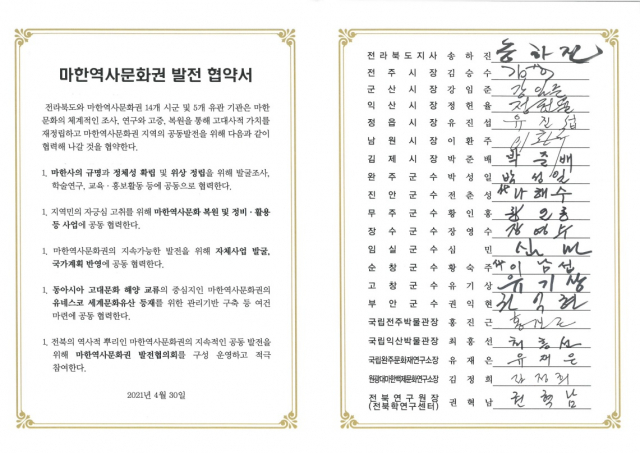 마한역사문화권 발전 협약서
전라북도와 마한역사문화권 14개 시군 및 5개 유관 기관은 마한
문화의 체계적인 조사, 연구와 고증, 복원을 통해 고대사적 가치를
재정립하고 마한역사문화권 지역의 공동발전을 위해 다음과 같이
협력해 나갈 것을 협약한다.
1. 마한사의 규명과 정체성 확립 및 위상 정립을 위해 발굴조사,
학술연구, 교육·홍보활동 등에 공동으로 협력한다.
1. 지역민의 자긍심 고취를 위해 마한역사문화 복원 및 정비·활용
등 사업에 공동 협력한다.
1. 마한역사문화권의 지속가능한 발전을 위해 자체사업 발굴,
국가계획 반영에 공동 협력한다.
1. 동아시아 고대문화 해양 교류의 중심지인 마한역사문화권의
유네스코 세계문화유산 등재를 위한 관리기반 구축 등 여건
마련에 공동 협력한다.
1. 전북의 역사적 뿌리인 마한역사문화권의 지속적인 공동 발전을
위해 마한역사문화권 발전협의회를 구성 운영하고 적극
참여한다.
2021년 4월 30일
전라북도지사 송하진 송하진
전주시장 김승수
군산시장 강임준 강임준
익산시장 정헌율 정헌율
정읍시장 유진섭 유진섭
남원시장 이환주 이환주
김제시장 박준배 박준배
완주군수 박성일 박성일
진안군수 전춘성 나해수
무주군수 황인홍 황인홍
장수군수 장영수 장영수
임실군수 심민 심민
순창군수 황숙주 이남섭
고창군수 유기상 유기상
부안군수 권익현 권익현
국립전주박물관장 홍진근 홍진근
국립익산박물관장 최흥선 최흥선
국립완주문화재연구소장 유재은 유재은
원광대마한백제문화연구소장 김정희 김정희
전북연구원장
(전북학연구센터) 권혁남 권혁남